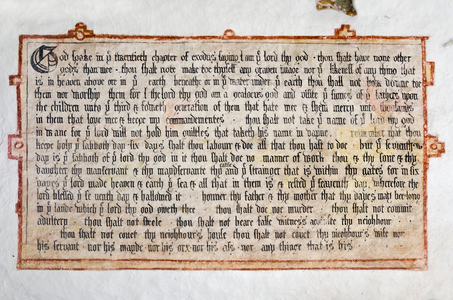 God spake in yᵉ twentieth chapter of exodus saying I am yᵉ lord thy god · thou shalt have none other
gods than mee · thou shalt not make to thyself any graven image nor yᵉ likenes of any thing that
is in heaven above or in yᵉ earth beneathe or in yᵉ water under yᵉ earth thou shalt not bow downe to
them nor worship them for I the lord thy god am a gealous god and visite yᵉ sinns of yᵉ fathers upon
the children unto yᵉ third & fourth generation of them that hate me & shew mercy unto thousands
in them that love me & keepe my commandementes · thou shalt not take yᵉ name of yᵉ lord thy god
in vaine for yᵉ lord will not hold him guiltles that taketh his name in vayne · remember that thou
keepe holy yᵉ sabboth day six days shalt thou labour & doe all that thou hast to doe · but yᵉ seventh
day is yᵉ sabboth of yᵉ lord thy god in it thou shalt doe no manner of work thou & thy sone & thy
daughter thy manservant & thy maydservant thy cattle and yᵉ stranger that is within thy gates for in six
dayes yᵉ lord made heaven & earth yᵉ sea & all that in them is & rested yᵉ seaventh day wherefore the
lord blessed yᵉ seventh day & hallowed it · honner thy father & thy mother that thy dayes may be long
in yᵉ lande which yᵉ lord thy god giveth thee · thou shalt doe not murder · thou shalt not commit
adultery · thou shalt not steele · thou shalt not beare false witness against thy neighbour
thou shalt not covet thy neighbours house thou shalt not covet thy neighbours wife nor
his servant · nor his mayde · nor his oxe · nor his asse · nor any thinge that is his